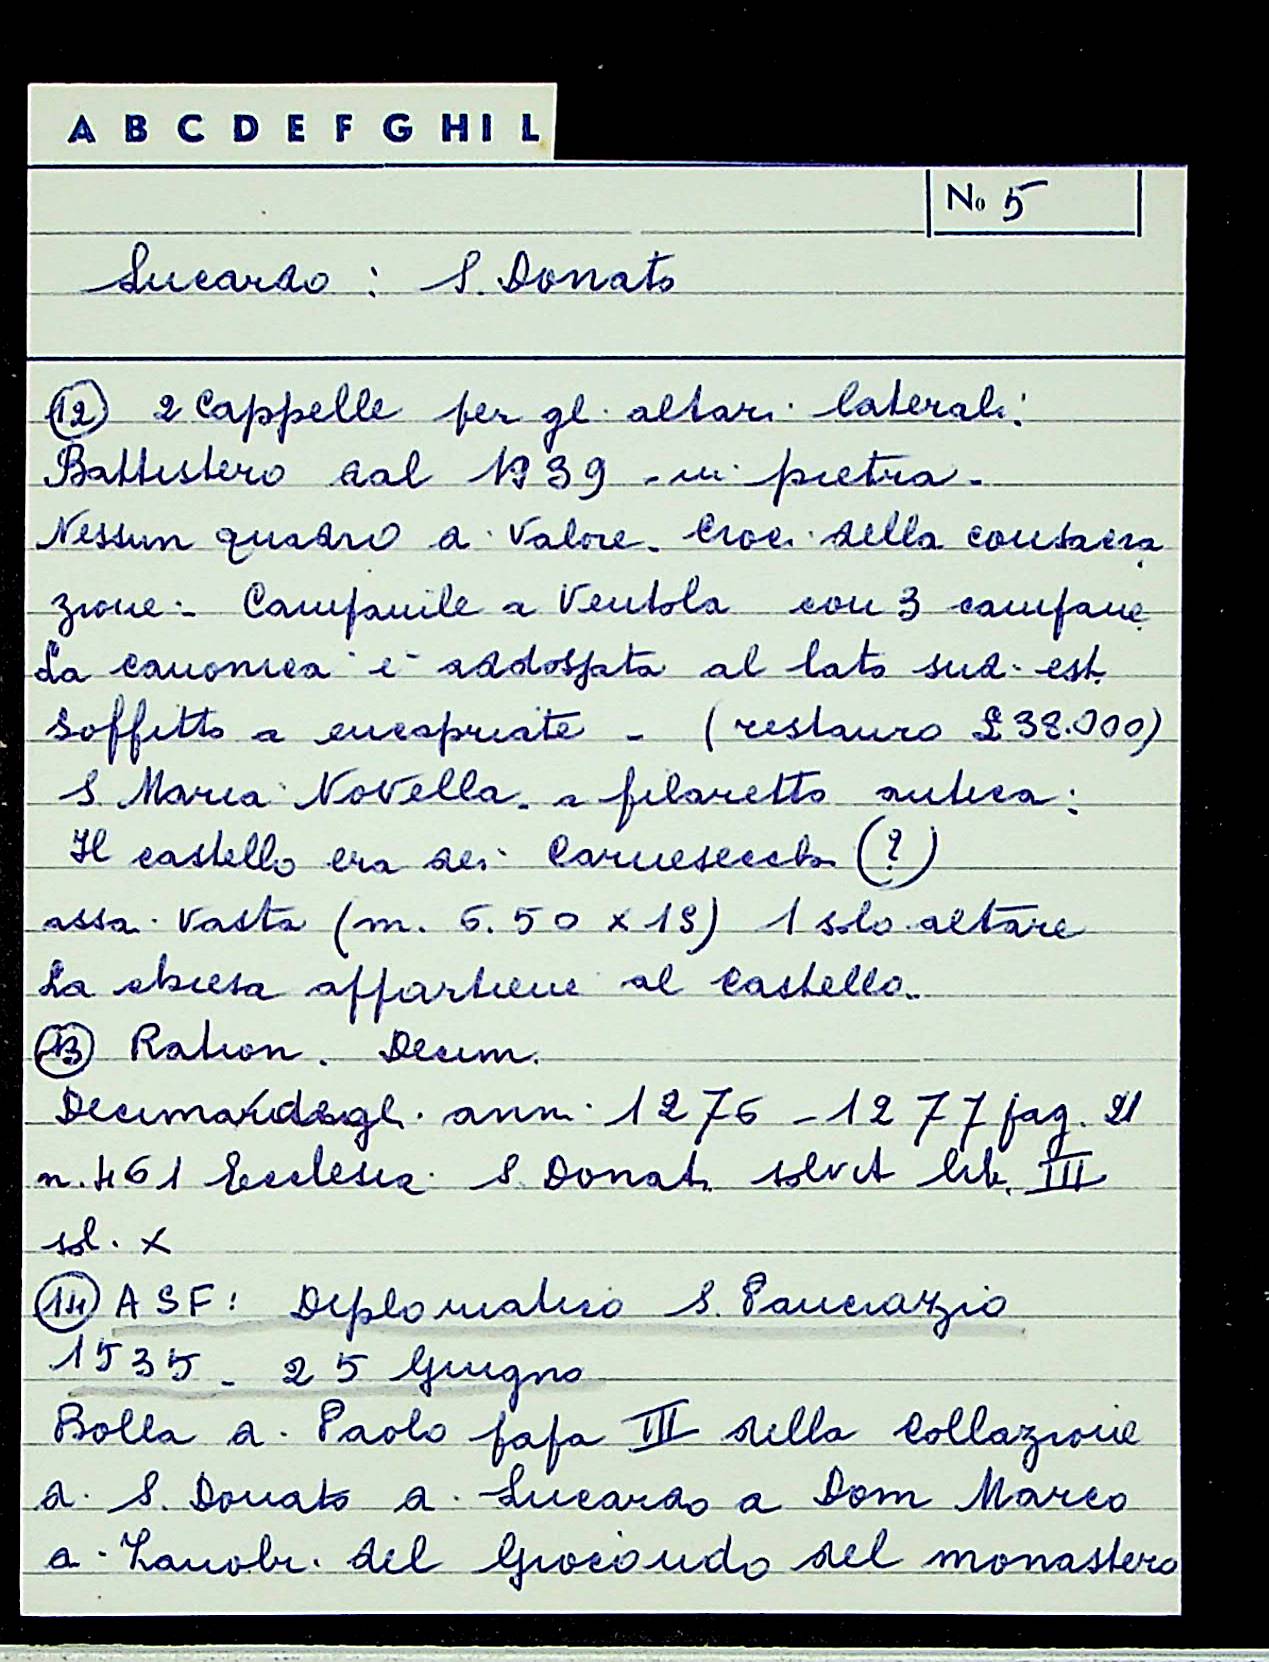 A B C D E F G H I L
No 5
Lucardo : S. Donato
(12) 2 Cappelle per gli altari laterali:
Battistero dal 1939 - in pietra -
Nessun quadro di valore. Croci della consacra
zione:- Campanile a Ventola con 3 campane
La canonica è addossata al lato sud-est.
Soffitto a encapriate - (restauro £38.000)
S. Maria Novella - a filaretto antica:
Il castello era dei Carnesecchi (?)
assai vasta (m. 6.50 x 19) 1 solo altare
La chiesa appartiene al Castello.
(13) Ration. Decim.
Decima degli anni 1276 - 1277 pag. 21
n. 461 Ecclesia S. Donati solvit lib. III
sol. x
(14) ASF: Diplomatico S. Pancrazio
1535 - 25 Giugno
Bolla di Paolo papa III della Collazione
di S. Donato di Lucardo a Dom Marco
di Zanobi del Giocondo del monastero